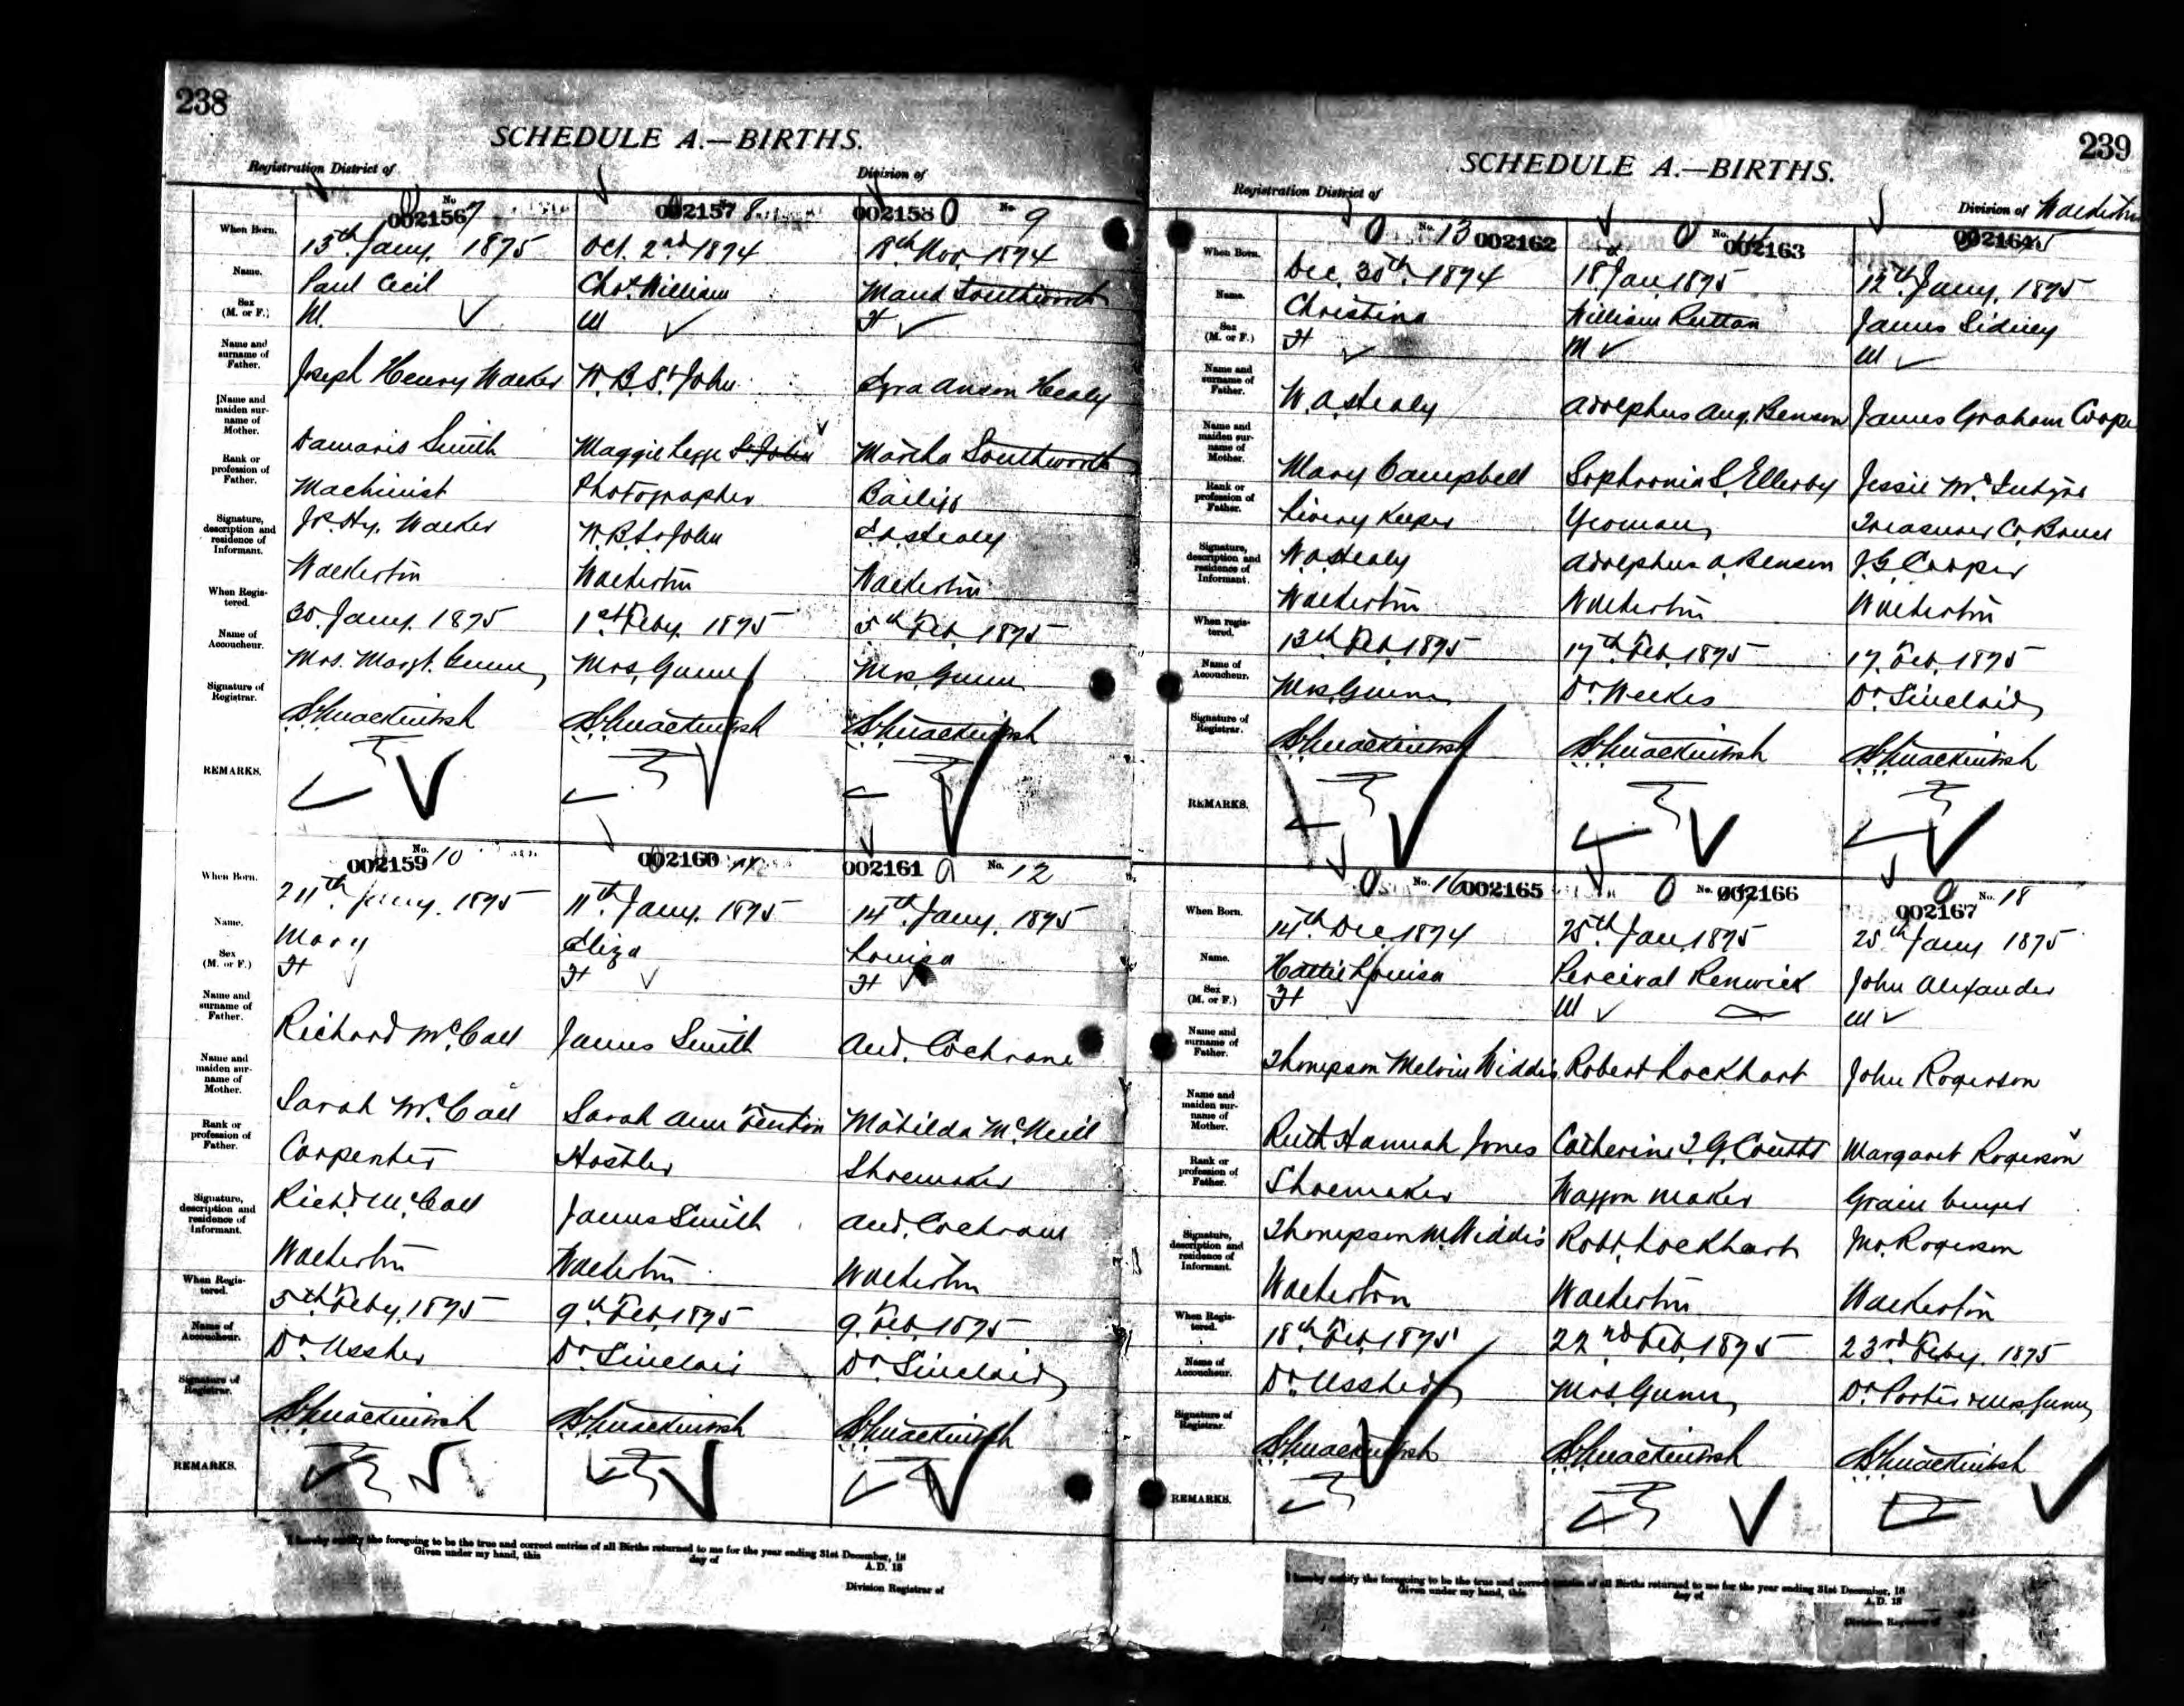 238
SCHEDULE A.—BIRTHS.
Registration District of
Division of
No 002156 7
002157 8
002158 No. 9
When Born.
15th Jany. 1895
Oct. 2nd 1894
18th Nov. 1894
Name.
Paul Cecil
Chas. William
Maud Southworth
Sex (M. or F.)
M.
M
F
Name and surname of Father.
Joseph Henry Walker
W. B. St John
Ezra Anson Healy
Name and maiden surname of Mother.
Damaris Smith
Maggie Legge St. John
Martha Southworth
Rank or profession of Father.
Machinist
Photographer
Bailiff
Signature, description and residence of Informant.
Js. Hy. Walker
W. B. St John
E A Healy
Walkerton
Walkerton
Walkerton
When Registered.
30. Jany. 1895
1st Feby. 1895
5th Feb. 1895
Name of Accoucheur.
Mrs. Margt. Gunn
Mrs. Gunn
Mrs. Gunn
Signature of Registrar.
REMARKS.
No. 002159 10
002160 11
002161 No. 12
When Born.
Jany. 1895
11th Jany. 1895
14th Jany. 1895
Name.
Mary
Eliza
Louisa
Sex (M. or F.)
F
F
F
Name and surname of Father.
Richard McCall
James Smith
And. Cochrane
Name and maiden surname of Mother.
Sarah McCall
Sarah Ann Fenton
Matilda McNeill
Rank or profession of Father.
Carpenter
Hostler
Shoemaker
Signature, description and residence of Informant.
Richd McCall
James Smith
And. Cochrane
Walkerton
Walkerton
Walkerton
When Registered.
5th Feby. 1895
9th Feb. 1895
9. Feb. 1895
Name of Accoucheur.
Dr. Ussher
Dr. Sinclair
Dr. Sinclair
Signature of Registrar.
REMARKS.
I hereby certify the foregoing to be the true and correct entries of all Births returned to me for the year ending 31st December, 18
Given under my hand, this day of A.D. 18
Division Registrar of
239
SCHEDULE A.—BIRTHS.
Registration District of
Division of Walkerton
No. 13 002162
No. 002163
002164
When Born.
Dec. 30th. 1894
18 Jan 1895
12th. Jany. 1895
Name.
Christina
William Ruttan
James Sidney
Sex (M. or F.)
F
M
M
Name and surname of Father.
W. A. Healy
Adolphus Aug. Benson
James Graham Cooper
Name and maiden surname of Mother.
Mary Campbell
Sophronia S. Ellerby
Jessie McIntyre
Rank or profession of Father.
Livery Keeper
Yeoman
Treasurer Co. Bruce
Signature, description and residence of Informant.
W. A. Healy
Adolphus A Benson
J. G. Cooper
Walkerton
Walkerton
Walkerton
When registered.
13th Feb. 1895
17th Feb. 1895
17. Feb. 1895
Name of Accoucheur.
Mrs. Gunn
Dr. Weekes
Dr. Sinclair
Signature of Registrar.
REMARKS.
No. 16 002165
No. 002166
No. 18 002167
When Born.
14th Dec. 1894
25th Jan. 1895
25th Jany 1895
Name.
Hattie Louisa
Percival Renwick
John Alexander
Sex (M. or F.)
F
M
M
Name and surname of Father.
Thompson Melvin Widdis
Robert Lockhart
John Rogerson
Name and maiden surname of Mother.
Ruth Hannah Jones
Catherine J. G. Coutts
Margaret Rogerson
Rank or profession of Father.
Shoemaker
Waggon maker
Grain buyer
Signature, description and residence of Informant.
Thompson M. Widdis
Robt. Lockhart
Jno. Rogerson
Walkerton
Walkerton
Walkerton
When Registered.
18th Feb. 1895
22nd Feb. 1895
23rd Feby. 1895
Name of Accoucheur.
Dr. Ussher
Mrs. Gunn
Dr. Porter & Mrs Gunn
Signature of Registrar.
REMARKS.
I hereby certify the foregoing to be the true and correct entries of all Births returned to me for the year ending 31st December, 18
Given under my hand, this day of A.D. 18
Division Registrar of